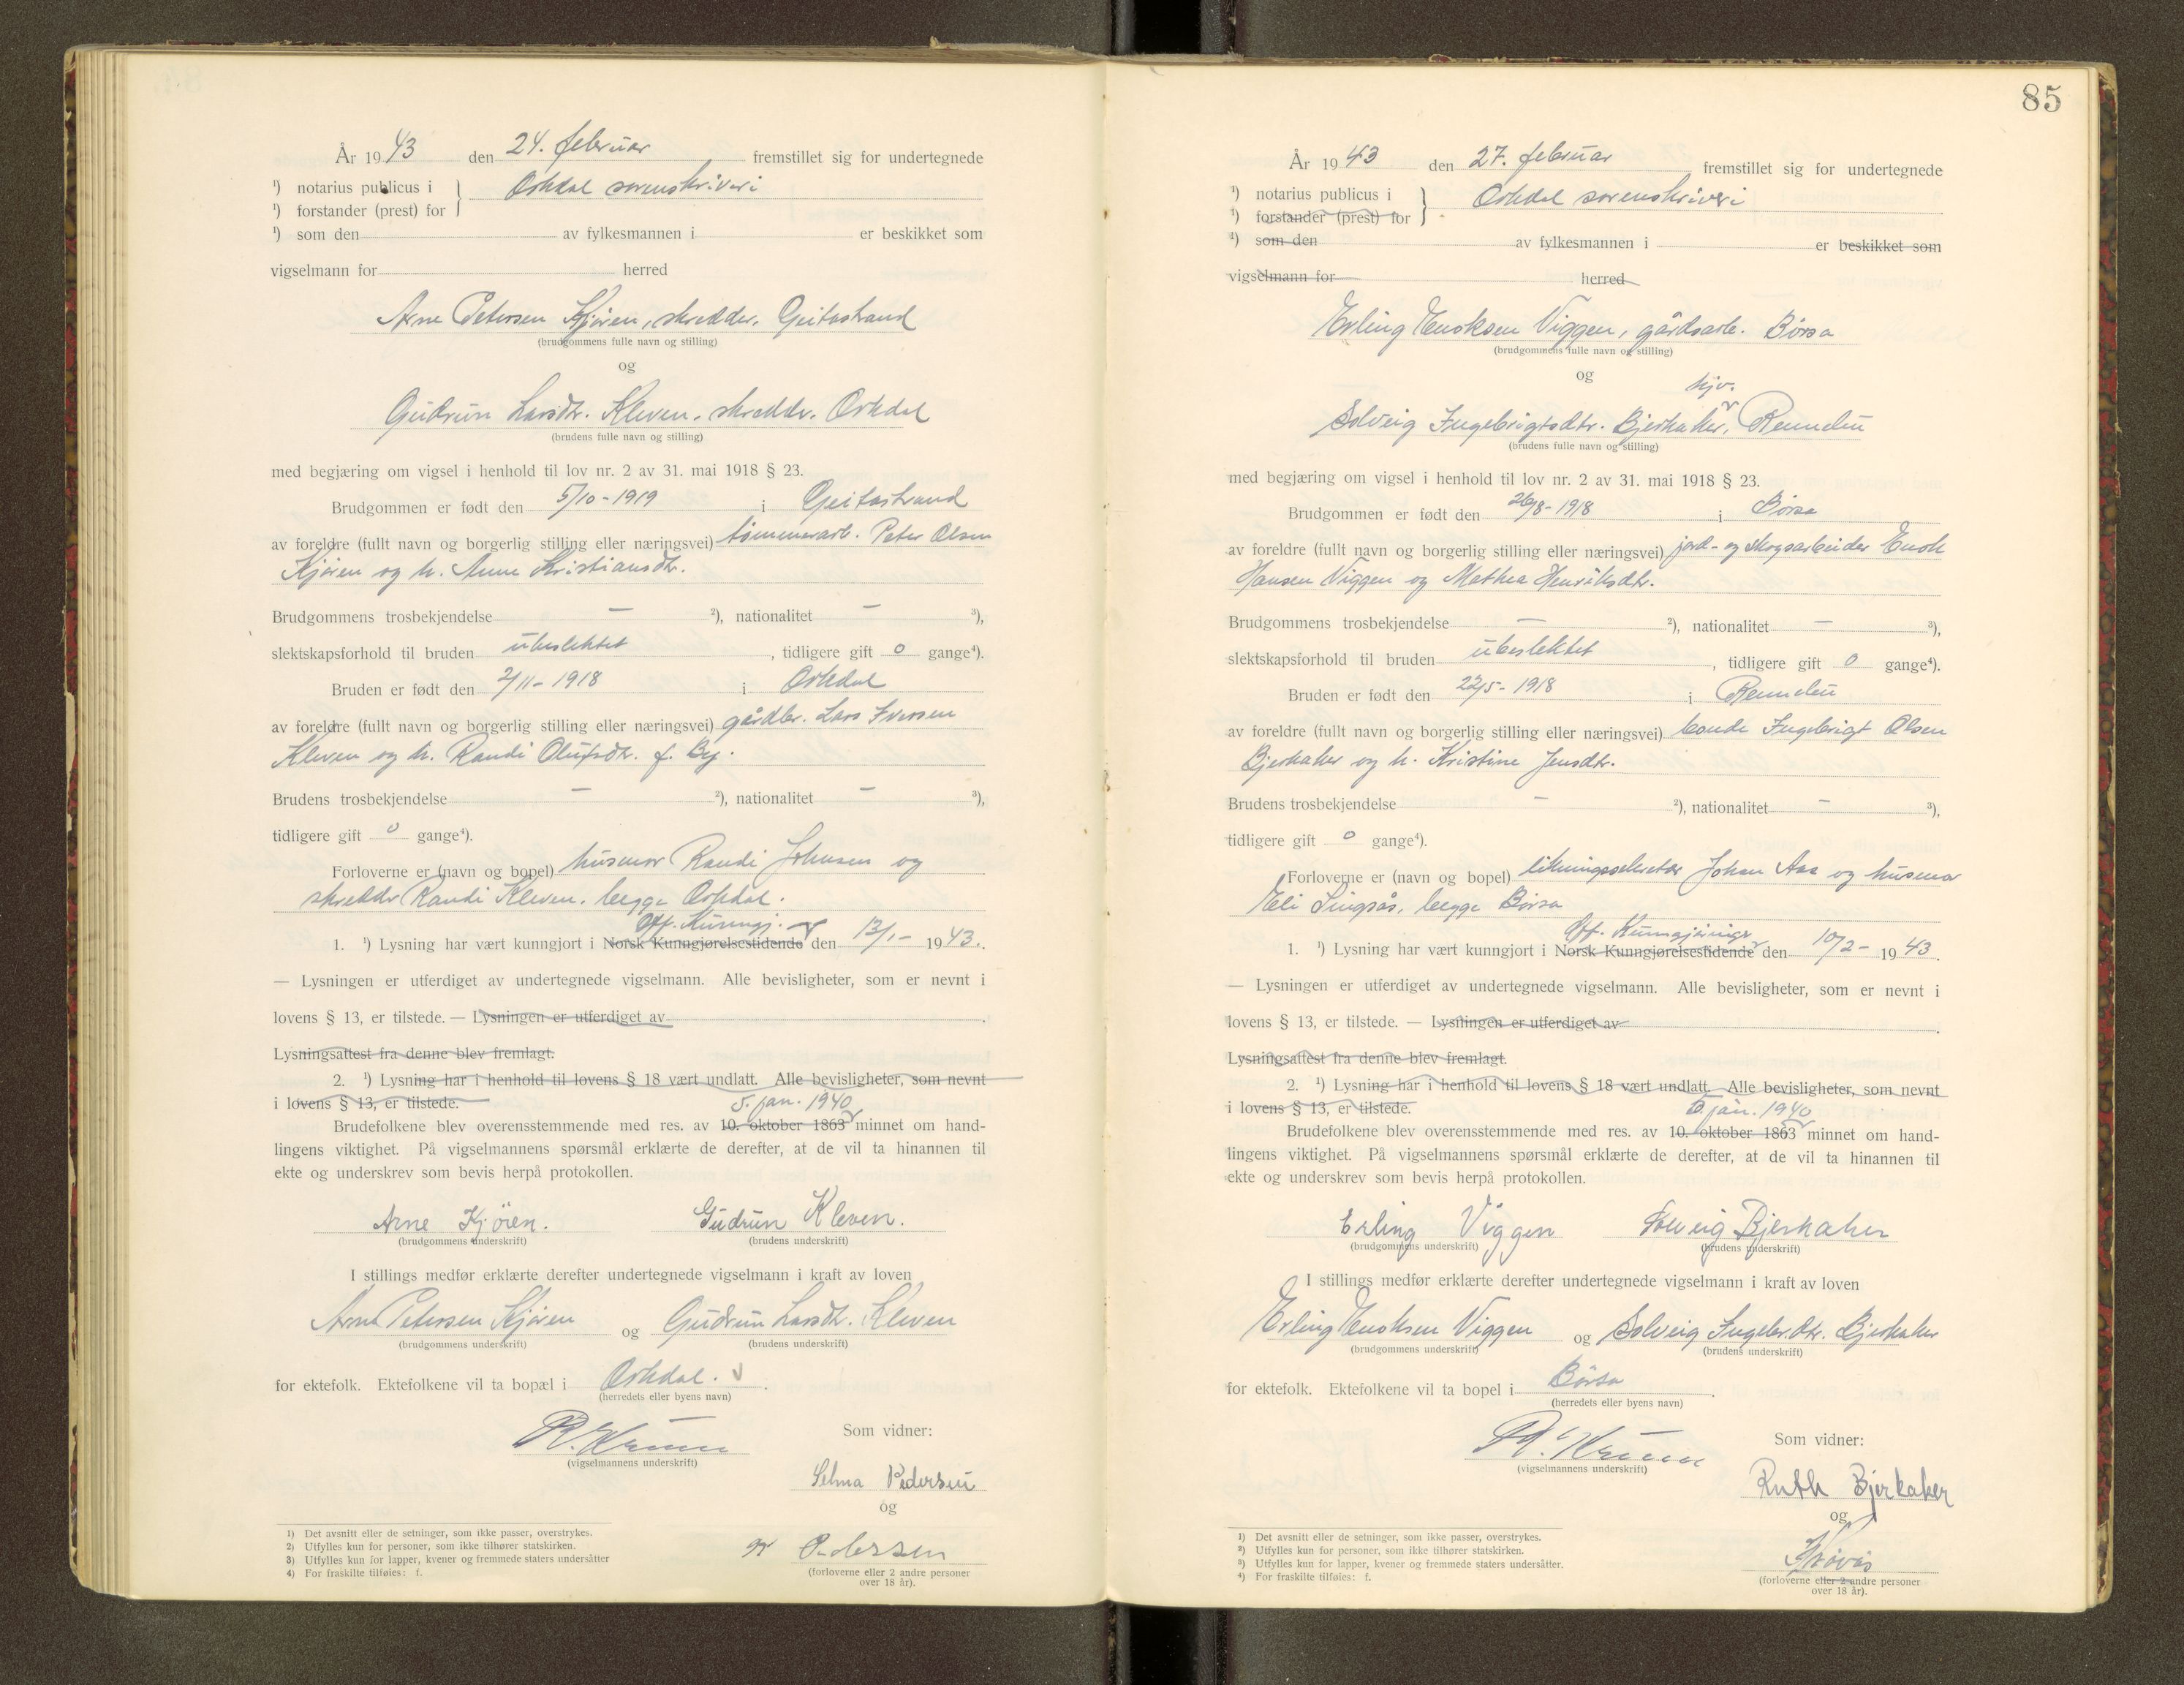 År 1943 den 24. februar fremstillet sig for undertegnede
¹) notarius publicus i } Orkdal sorenskriveri
¹) forstander (prest) for
¹) som den av fylkesmannen i er beskikket som
vigselmann for herred
Arne Petersen Kjøren, skredder, Geitastrand
(brudgommens fulle navn og stilling)
og
Gudrun Larsdtr. Kleven, skreddr. Orkdal
(brudens fulle navn og stilling)
med begjæring om vigsel i henhold til lov nr. 2 av 31. mai 1918 § 23.
Brudgommen er født den 5/10-1919 i Geitastrand
av foreldre (fullt navn og borgerlig stilling eller næringsvei) tømmerarb. Peter Olsen
Kjøren og h. Anne Kristiansdtr.
Brudgommens trosbekjendelse — ²), nationalitet — ³),
slektskapsforhold til bruden ubeslektet, tidligere gift 0 gange⁴).
Bruden er født den 2/11-1918 i Orkdal
av foreldre (fullt navn og borgerlig stilling eller næringsvei) gårdbr. Lars Iversen
Kleven og h. Randi Olufsdtr. f. By.
Brudens trosbekjendelse — ²), nationalitet — ³),
tidligere gift 0 gange⁴).
Forloverne er (navn og bopel) husmor Randi Johnsen og
skreddr Randi Kleven, begge Orkdal.
Off. Kunngj.
1. ¹) Lysning har vært kunngjort i Norsk Kunngjørelsestidende den 13/1- 1943.
— Lysningen er utferdiget av undertegnede vigselmann. Alle bevisligheter, som er nevnt i
lovens § 13, er tilstede. — Lysningen er utferdiget av .
Lysningsattest fra denne blev fremlagt.
2. ¹) Lysning har i henhold til lovens § 18 vært undlatt. Alle bevisligheter, som nevnt
i lovens § 13, er tilstede.
5. jan. 1940
Brudefolkene blev overensstemmende med res. av 10. oktober 1863 minnet om hand-
lingens viktighet. På vigselmannens spørsmål erklærte de derefter, at de vil ta hinannen til
ekte og underskrev som bevis herpå protokollen.
Arne Kjören. Gudrun Kleven.
(brudgommens underskrift) (brudens underskrift)
I stillings medfør erklærte derefter undertegnede vigselmann i kraft av loven
Arne Petersen Kjøren og Gudrun Larsdtr. Kleven
(brudgommens underskrift) (brudens underskrift)
for ektefolk. Ektefolkene vil ta bopæl i Orkdal.
(herredets eller byens navn)
(vigselmannens underskrift)
Som vidner:
Selma Pedersen
og
Pedersen
(forloverne eller 2 andre personer
over 18 år).
1) Det avsnitt eller de setninger, som ikke passer, overstrykes.
2) Utfylles kun for personer, som ikke tilhører statskirken.
3) Utfylles kun for lapper, kvener og fremmede staters undersåtter
4) For fraskilte tilføies: f.
85
År 1943 den 27. februar fremstillet sig for undertegnede
¹) notarius publicus i } Orkdal sorenskriveri
¹) forstander (prest) for
¹) som den av fylkesmannen i er beskikket som
vigselmann for herred
Erling Enoksen Viggen, gårdsarb. Børsa
(brudgommens fulle navn og stilling)
og
hjv.
Solveig Ingebrigtsdtr. Bjerkaker, Rennebu
(brudens fulle navn og stilling)
med begjæring om vigsel i henhold til lov nr. 2 av 31. mai 1918 § 23.
Brudgommen er født den 26/8-1918 i Børsa
av foreldre (fullt navn og borgerlig stilling eller næringsvei) jord- og skogsarbeider Enok
Hansen Viggen og Mathea Henriksdtr.
Brudgommens trosbekjendelse — ²), nationalitet — ³),
slektskapsforhold til bruden ubeslektet, tidligere gift 0 gange⁴).
Bruden er født den 22/5-1918 i Rennebu
av foreldre (fullt navn og borgerlig stilling eller næringsvei) bonde Ingebrigt Olsen
Bjerkaker og h. Kristine Jensdtr.
Brudens trosbekjendelse — ²), nationalitet — ³),
tidligere gift 0 gange⁴).
Forloverne er (navn og bopel) likningssekretær Johan Aaa og husmor
Eli Singsås, begge Børsa
Off. Kunngjøringer
1. ¹) Lysning har vært kunngjort i Norsk Kunngjørelsestidende den 10/2- 1943.
— Lysningen er utferdiget av undertegnede vigselmann. Alle bevisligheter, som er nevnt i
lovens § 13, er tilstede. — Lysningen er utferdiget av .
Lysningsattest fra denne blev fremlagt.
2. ¹) Lysning har i henhold til lovens § 18 vært undlatt. Alle bevisligheter, som nevnt
i lovens § 13, er tilstede.
5. jan. 1940
Brudefolkene blev overensstemmende med res. av 10. oktober 1863 minnet om hand-
lingens viktighet. På vigselmannens spørsmål erklærte de derefter, at de vil ta hinannen til
ekte og underskrev som bevis herpå protokollen.
Erling Viggen Solveig Bjerkaker
(brudgommens underskrift) (brudens underskrift)
I stillings medfør erklærte derefter undertegnede vigselmann i kraft av loven
Erling Enoksen Viggen og Solveig Ingebr.dtr. Bjerkaker
(brudgommens underskrift) (brudens underskrift)
for ektefolk. Ektefolkene vil ta bopel i Børsa .
(herredets eller byens navn)
(vigselmannens underskrift)
Som vidner:
Ruth Bjerkaker
og
(forloverne eller 2 andre personer
over 18 år).
1) Det avsnitt eller de setninger, som ikke passer, overstrykes.
2) Utfylles kun for personer, som ikke tilhører statskirken.
3) Utfylles kun for lapper, kvener og fremmede staters undersåtter.
4) For fraskilte tilføies: f.